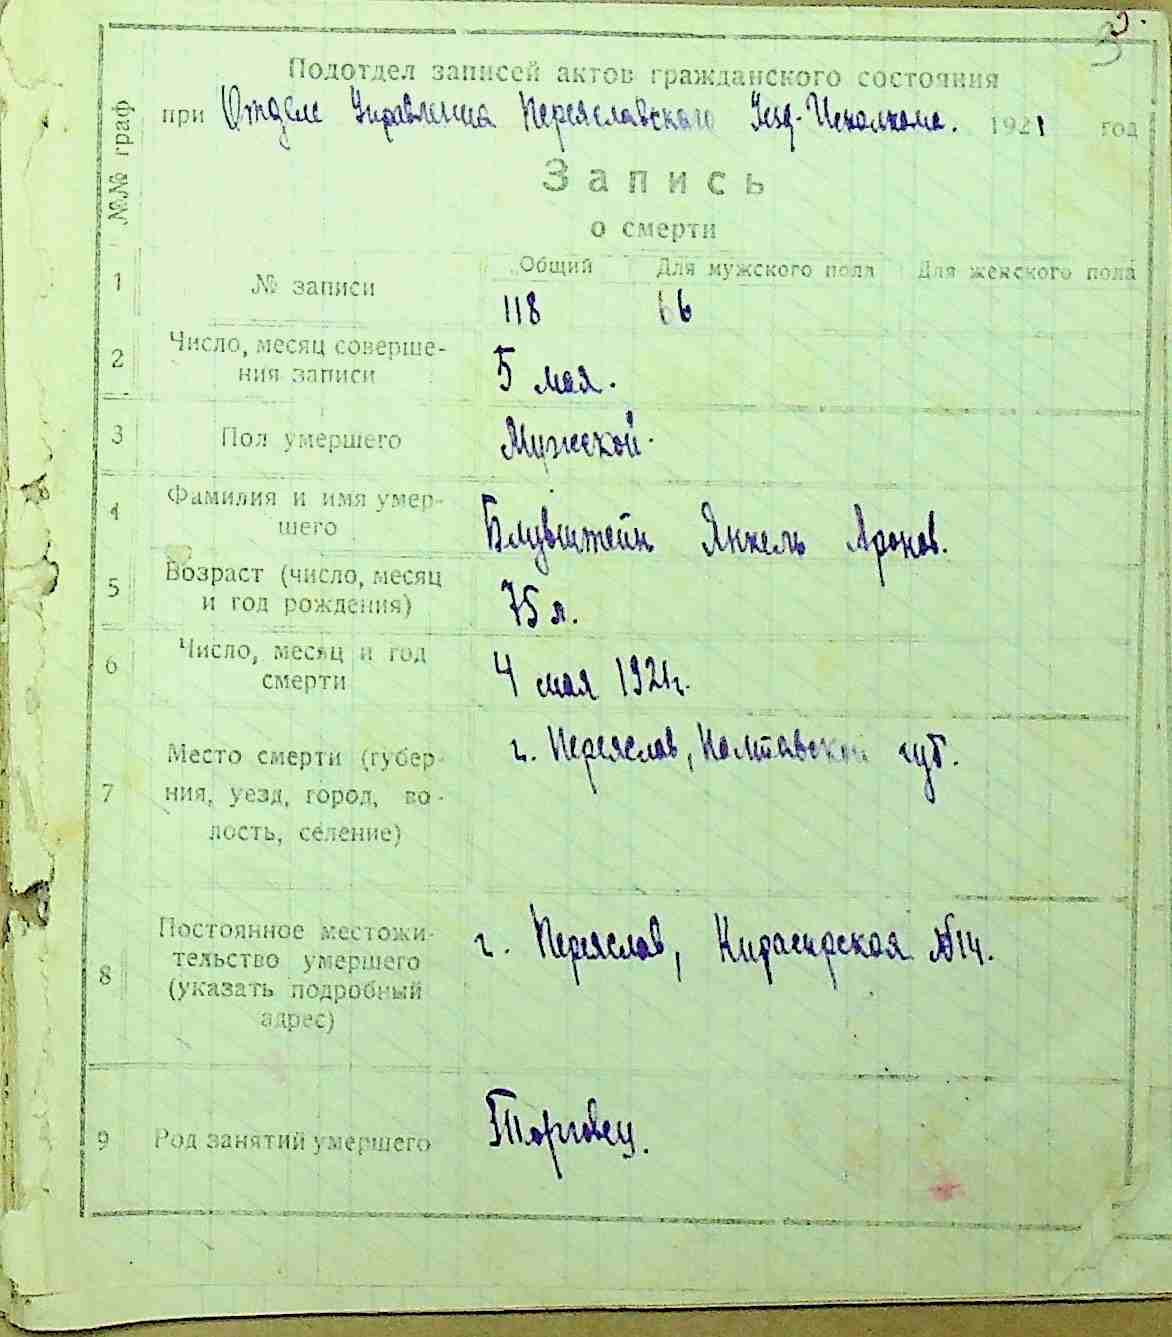 3
Подотдел записей актов гражданского состояния
при Отделе Управления Переяславского Уезд-Исполкома. 1921 год
№№ граф
Запись
о смерти
Общий Для мужского пола Для женского пола
1 № записи 118 66
2 Число, месяц соверше-
ния записи 5 мая.
3 Пол умершего Мужской.
4 Фамилия и имя умер-
шего Блувштейн Янкель Аронов.
5 Возраст (число, месяц
и год рождения) 75 л.
6 Число, месяц и год
смерти 4 мая 1921 г.
7 Место смерти (губер-
ния, уезд, город, во-
лость, селение) г. Переяслав, Полтавской губ.
8 Постоянное местожи-
тельство умершего
(указать подробный
адрес) г. Переяслав, Кирасирская №14.
9 Род занятий умершего Торговец.